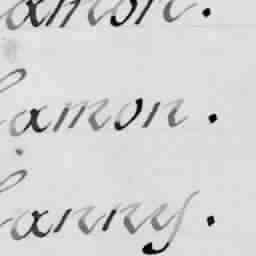 amon.
amon.
anny.